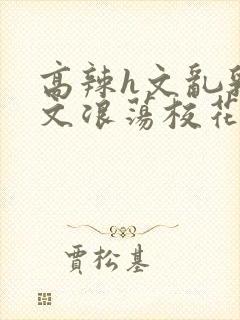 高辣h文乱乳
文浪荡校花
贾松基